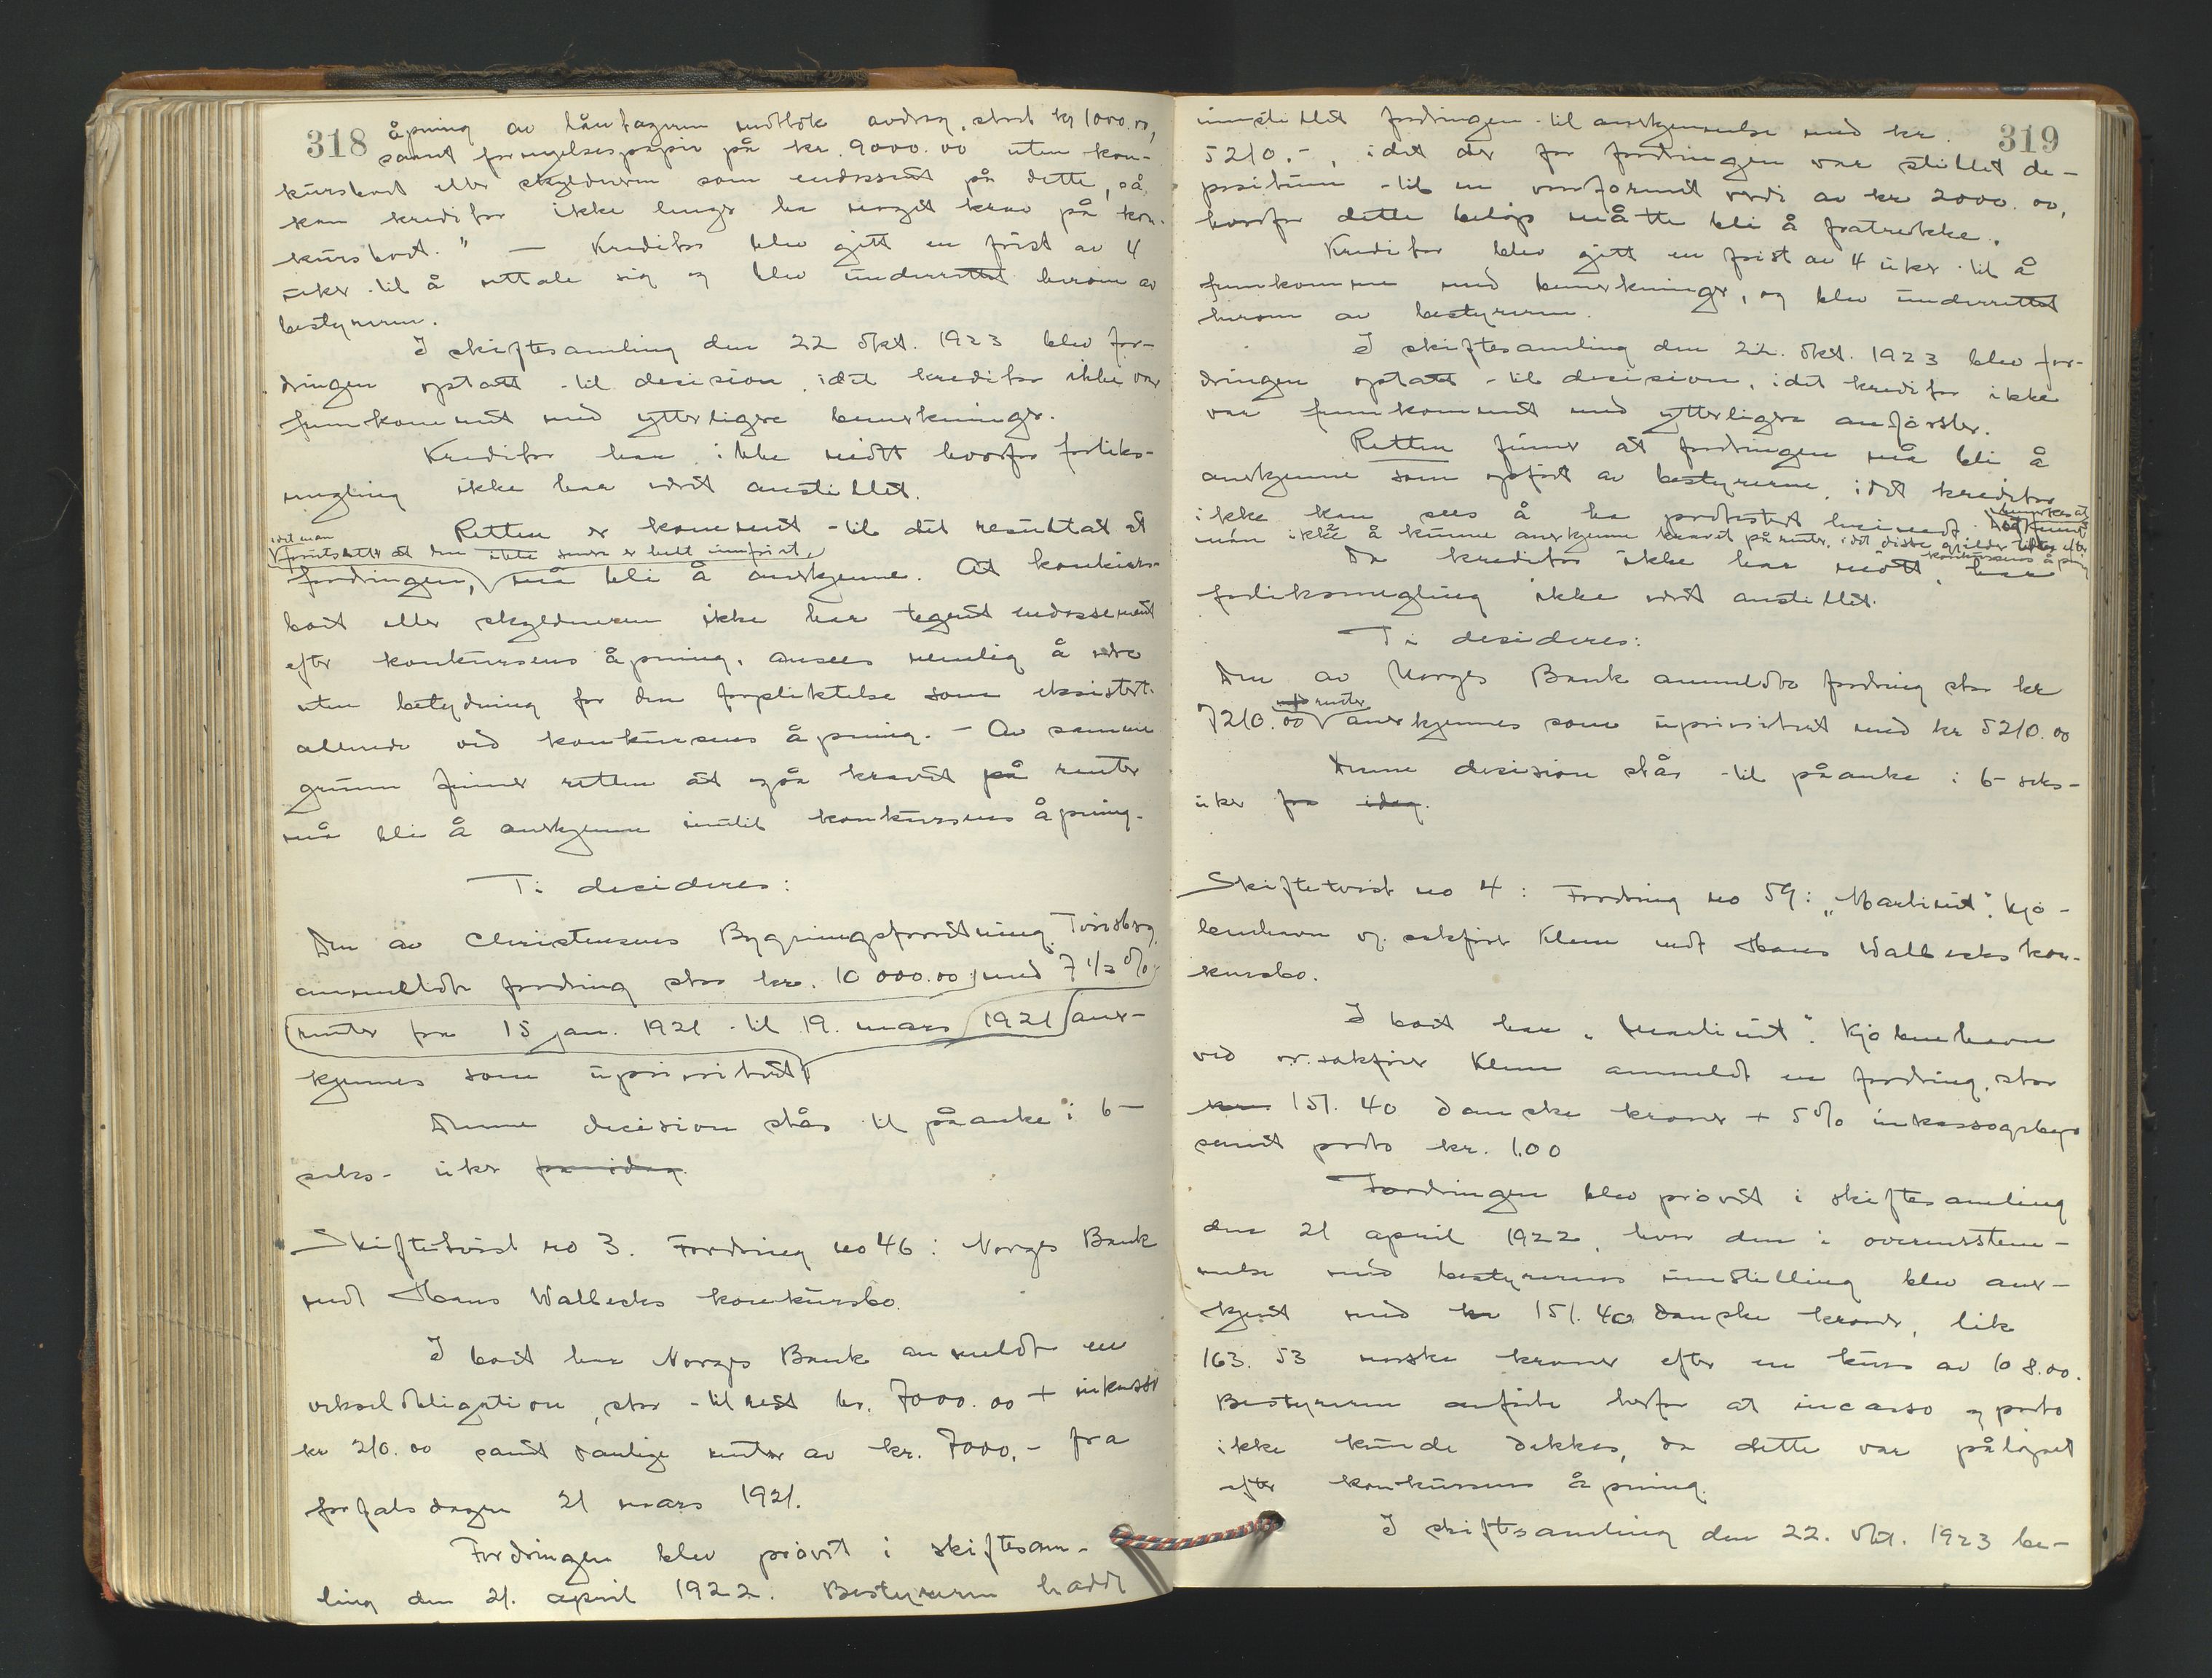 318 åpning av låntageren mottok avdrag, stort kr 1000.00,
samt fornyelsespapir på kr. 9000.00 uten kon-
kursboet eller skyldneren som endossent på dette, så
kan kreditor ikke lenger ha noget krav på kon-
kursboet." — Kreditor blev gitt en frist av 4
uker til å uttale sig og blev underrettet herom av
bestyreren.
I skiftesamling den 22 okt. 1923 blev for-
dringen optatt til decision, idet kreditor ikke var
fremkommet med ytterligere bemerkninger.
Kreditor har ikke møtt hvorfor forliks-
megling ikke har vært anstillet.
Retten er kommet til det resultat at
idet man
forutsetter at den ikke senere er helt innfriet,
fordringen, må bli å anerkjenne. At konkurs-
boet eller skyldneren ikke har tegnet endossement
efter konkursens åpning, ansees nemlig å være
uten betydning for den forpliktelse som eksisterte
allerede ved konkursens åpning. — Av samme
grunn finner retten at også kravet på renter
må bli å anerkjenne inntil konkursens åpning.
Ti decideres:
Den av Christensens Bygningsforretning, Tønsberg,
anmeldte fordring stor kr. 10 000.00 med 7 1/2 %
renter fra 15 jan. 1921 til 19. mars 1921 aner-
kjennes som uprioritert
Denne decision står til påanke i 6-
seks- uker fra idag.
Skiftetvist no 3. Fordring no 46: Norges Bank
mot Hans Wallecks konkursbo.
I boet har Norges Bank anmeldt en
vekselobligation, stor til rest kr. 7000.00 + inkasso
kr 210.00 samt vanlige renter av kr. 7000.- fra
forfalsdagen 21 mars 1921.
Fordringen blev prøvet i skiftesam-
ling den 21. april 1922. Bestyreren hadde
319
innstillet fordringen til anerkjennelse med kr
5210.-, idet der for fordringen var stillet de-
positum til en verdi av kr 2000.00,
hvorfor dette beløp måtte bli å fratrekke.
Kreditor blev gitt en frist av 4 uker til å
fremkomme med bemerkninger, og blev underrettet
herom av bestyreren.
I skiftesamling den 22. okt. 1923 blev for-
dringen optatt til decision, idet kreditor ikke
var fremkommet med ytterligere anførsler.
Retten finner at fordringen må bli å
anerkjenne som opført av bestyreren, idet kreditor
ikke kan sees å ha protestert herimot. bemerkes at
man ikke å kunne anerkjenne kravet på renter, idet disse gjelder tiden efter
konkursens åpning
Da kreditor ikke har møtt, har
forliksmegling ikke vært anstillet.
Ti desideres:
Den av Norges Bank anmeldte fordring stor kr
renter
7210.00 anerkjennes som uprioritert med kr 5210.00
Denne decision står til påanke i 6-seks-
uker fra idag.
Skiftetvist no 4: Fordring no 59: „Martinit". Kjø-
benhavn v. sakfører Klem mot Hans Wallecks kon-
kursbo.
I boet har „Martinit". Kjøbenhavn
ved or. sakfører Klem anmeldt en fordring, stor
kr. 151.40 danske kroner + 5% inkassogebyr
samt porto kr. 1.00
Fordringen blev prøvet i skiftesamling
den 21 april 1922, hvor den i overensstem-
melse med bestyrerens innstilling blev aner-
kjent med kr 151.40 danske kroner, lik
163.53 norske kroner efter en kurs av 108.00.
Bestyreren anførte herfor at incasso og porto
ikke kunde dekkes, da dette var påløpet
efter konkursens åpning.
I skiftesamling den 22. okt. 1923 be-